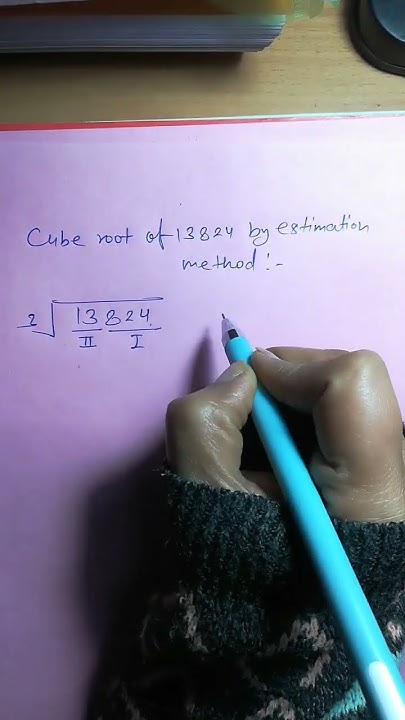 Cube root of 13824 by estimation
method :-
2√13824
II I